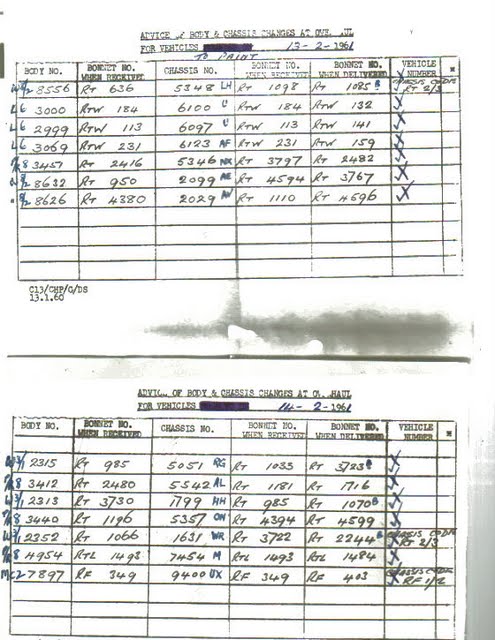 ADVICE OF BODY & CHASSIS CHANGES AT OVE HAUL
FOR VEHICLES 13-2-1961
TO PAINT
BODY NO. BONNET NO. WHEN RECEIVED CHASSIS NO. BONNET NO. WHEN RECEIVED BONNET NO. WHEN DELIVERED VEHICLE NUMBER *
8556 RT 636 5348 LH RT 1098 RT 1085 B CHASSIS CODE RT 2/3
L6 3000 RTW 184 6100 U RTW 184 RTW 132
L6 2999 RTW 113 6097 U RTW 113 RTW 141
L6 3069 RTW 231 6123 AF RTW 231 RTW 159
3457 RT 2416 5346 NX RT 3797 RT 2482
8632 RT 950 2099 AE RT 4594 RT 3767
8626 RT 4380 2029 AV RT 1110 RT 4596
C13/CHP/G/DS
13.1.60
ADVIC OF BODY & CHASSIS CHANGES AT OV HAUL
FOR VEHICLES 14-2-1961
BODY NO. BONNET NO. WHEN RECEIVED CHASSIS NO. BONNET NO. WHEN RECEIVED BONNET NO. WHEN DELIVERED VEHICLE NUMBER *
2315 RT 985 5051 RG RT 1033 RT 3723 B
3412 RT 2480 5542 AL RT 1181 RT 1716
2313 RT 3730 1799 HH RT 985 RT 1070 B
3440 RT 1196 5357 OH RT 4394 RT 4599
2352 RT 1066 1631 WR RT 3722 RT 2244 B CHASSIS CODE RT 2/3
4954 RTL 1493 7454 M RTL 1493 RTL 1484
7897 RF 349 9400 UX RF 349 RF 403 CHASSIS CODE RF 1/2